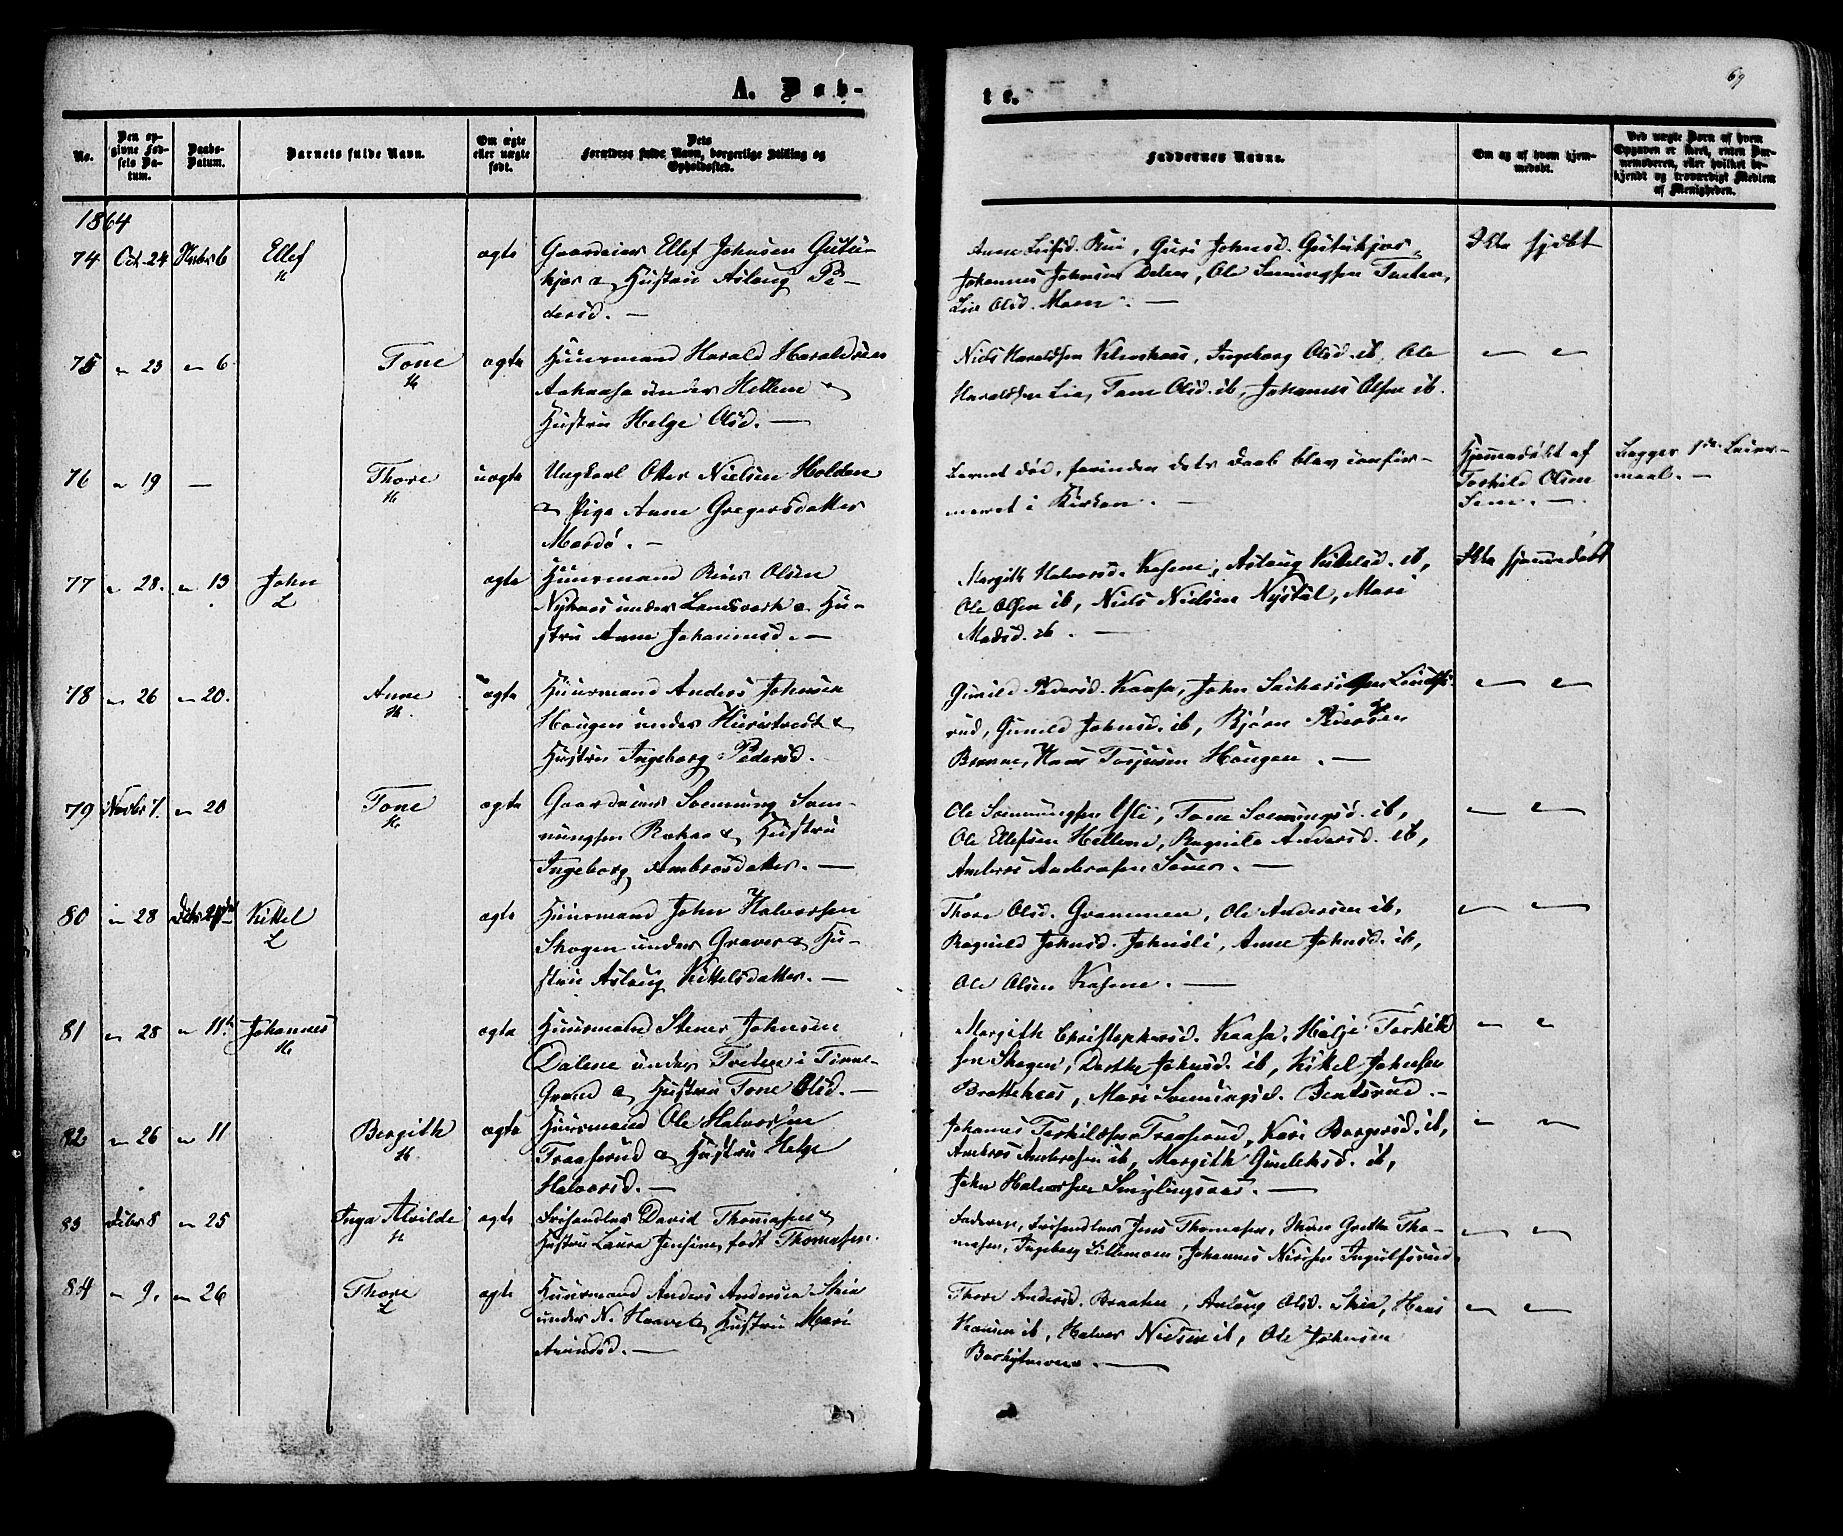 A. Døb-
te.
69
No.
Den op-
givne Fød-
sels Da-
tum.
Daabs-
Datum.
Barnets fulde Navn.
Om ægte
eller uægte
født.
Dets
Forældres fulde Navn, borgerlige Stilling og
Opholdssted.
Faddernes Navne.
Om og af hvem hjem-
medøbt.
Ved uægte Børn af hvem
Opgaven er skeet, enten Bar-
nemoderen, eller hvilket be-
kjendt og troværdigt Medlem
af Menigheden.
1864
74 Oct. 24 6 Ellef ægte Gaardeier Ellef Johnsen Gutu-
kjos & Hustru Aslaug Pe-
dersd. —
H
Anne Leifsd. Rui, Guri Johnsd. Gutukjos,
Johannes Johnsen Dolen, Ole Sveinungsen Treten,
Liv Olsd. Moen. —
Ikke hjdbt
75 " 23 " 6 Tone ægte Huusmand Harald Haraldsen
Aakaasa under Hellene &
Hustru Helge Olsd. —
H
Niels Haraldsen, Ingeborg Olsd. ib, Ole
Haraldsen Lia, Tone Olsd. ib, Johannes Olsen ib.
" "
76 " 19 — Thore uægte Ungkarl Otter Nielsen Holden
& Pige Anne Gregersdatter
Mardö. —
H
Barnet död, forinden dets Daab blev confir-
meret i Kirken. —
Hjemmedöbt af
Torkild Olsen
Sem. —
Begges 1ste Leier-
maal. —
77 " 28. " 13 John ægte Huusmand Olsen
Nykaas under Landsverk & Hu-
stru Anne Johannesd. —
L
Margith Halvorsd. Kasene, Aslaug Kittelsd. ib,
Ole Olsen ib, Niels Nielsen Nystul, Mari
Madsd. ib. —
Ikke hjemmedöbt
78 " 26 " 20. Anne ægte Huusmand Anders Johnsen
Haugen under &
Hustru Ingeborg Pedersd.
H.
Gunild Pedersd. Kaasa, John
rud, Gunild Johnsd. ib, Björn
Hans Torjusen Haugen. —
" "
79 Novbr 7. " 20 Tone ægte Gaardeier Svenung Sven-
nungsen Bakaas & Hustru
Ingeborg Ambrosdatter. —
H.
Ole Svennungsen Yli, Tone Svennungsd. ib,
Ole Ellefsen Hellene, Ragnild Andersd. ib,
Ambros Andersen —
" "
80 " 28 Kittel ægte Huusmand John Halvorsen
Skogen under Graver & Hu-
stru Aslaug Kittelsdatter. —
L
Thore Olsd. Grommen, Ole Andersen ib,
Ragnild Johnsd. Johnsli, Anne Johnsd. ib,
Ole Olsen Kasene. —
" "
81 " 28 " 11te Johannes ægte Huusmand Stener Johnsen
Dalene under Treten i Tinne-
Grend & Hustru Tone Olsd. —
H.
Margith Christophersd. Kaasa, Helje Torkild-
sen Skogen, Dorthe Johnsd. ib, Kittel Johnsen
Brattekaas, Mari Svenningsd. Bentsrud. —
" "
82 " 26 " 11 Bergith ægte Huusmand Ole Halvorsen
Traaserud & Hustru Helge
Halvorsd. —
H.
Johannes Torkildsen Traaserud, Kari Borgersd. ib,
Ambros Ambrosen ib, Margith Gunleksd. ib,
John Halvorsen —
" "
83 Decbr 8 " 25 Inga Alvilde ægte Frihandler David Thomasen &
Hustru Laura Jensine, født Thomasen.
H
Faderen, Frihandler Jens Thomasen, Grethe Tho-
masen, Ingeborg Lillemoen, Johannes Nirisen Ingulfsrud.
" "
84 " 9. " 26 Thore ægte Huusmand Anders Andersen Skia
under N. Haave & Hustru Mari
Amundsd. —
L
Thore Andersd. Braaten, Aslaug Olsd. Skia, Hans
Hansen ib, Halvor Nielsen ib, Ole Johnsen
—
" "